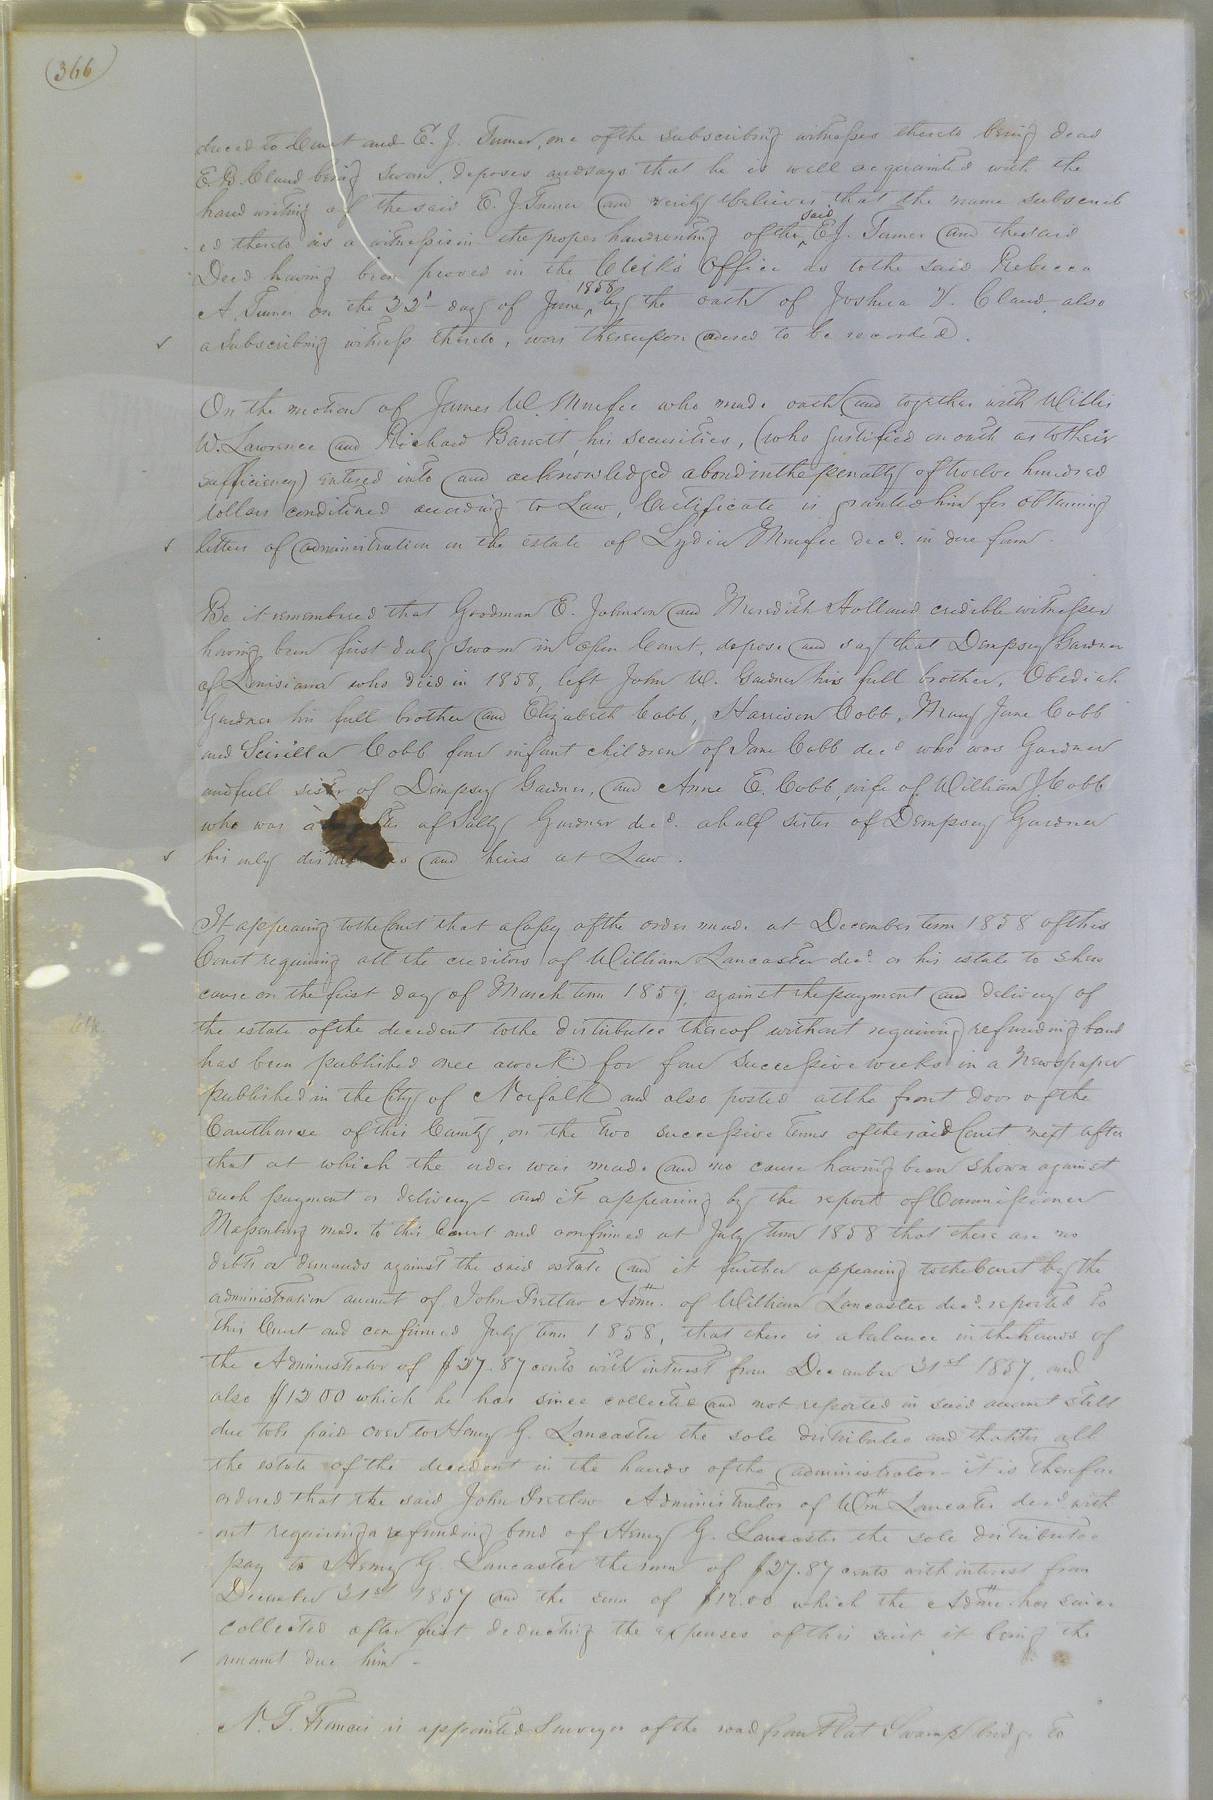 366
duced to Court and E. J. Turner, one of the subscribing witnesses thereto being dead
E. B. Claud being sworn, deposes and says that he is well acquainted with the
hand writing of the said E. J. Turner and verily believes that the name subscrib
ed thereto as a witness is in the proper handwriting of the said E. J. Turner and the said
Deed having been proved in the Clerk's Office as to the said Rebecca
A. Turner on the 22d day of June 1858, by the oath of Joshua V. Claud, also
a subscribing witness thereto, was thereupon ordered to be recorded.
On the motion of James W. Murfee who made oath and together with Willis
W. Lawrence and Richard Barrett, his securities, (who justified on oath as to their
sufficiency) entered into and acknowledged a bond in the penalty of twelve hundred
dollars conditioned according to Law, Certificate is granted him for obtaining
letters of administration on the estate of Lydia Murfee decd. in due form.
Be it remembered that Goodman E. Johnson and Meredith Holland credible witnesses
having been first duly sworn in open Court, depose and say that Dempsey Gardner
of Louisiana who died in 1858, left John W. Gardner his full brother, Obediah
Gardner his full brother and Elizabeth Cobb, Harrison Cobb, Mary Jane Cobb
and Scirilla Cobb four infant children of Jane Cobb decd who was Gardner
and full sister of Dempsey Gardner, and Anne E. Cobb, wife of William J Cobb
who was a of Sally Gardner decd. a half sister of Dempsey Gardner
his only and heirs at Law.
It appearing to the Court that a Copy of the order made at December term 1858 of this
Court requiring all the creditors of William Lancaster decd. or his estate to shew
cause on the first day of March term 1859, against the payment and delivery of
the estate of the decedent to the distributee thereof without requiring refunding bond
has been published once a week for four successive weeks in a Newspaper
published in the City of Norfolk and also posted at the front door of the
Courthouse of this County, on the two successive terms of the said Court next after
that at which the order was made and no cause having been shown against
such payment or delivery and it appearing by the report of Commissioner
Massenburg made to this Court and confirmed at July term 1858 that there are no
debts or demands against the said estate and it further appearing to the Court by the
administration account of John Pretlow Admr. of William Lancaster decd. reported to
this Court and confirmed July term 1858, that there is a balance in the hands of
the Administrator of $27.87 cents with interest from December 31st 1857, and
also $12.00 which he has since collected and not reported in said account still
due to be paid over to Henry G. Lancaster the sole distributee and that is all
the estate of the decedent in the hands of the administrator - it is therefore
ordered that the said John Pretlow Administrator of Wm Lancaster decd with
out requiring a refunding bond of Henry G. Lancaster the sole distributee
pay to Henry G. Lancaster the sum of $27.87 cents with interest from
December 31st 1857 and the sum of $12.00 which the Admr. has since
collected after first deducting the expenses of this suit it being the
amount due him -
N. T. Francis is appointed Surveyor of the road from Flat Swamp bridge to